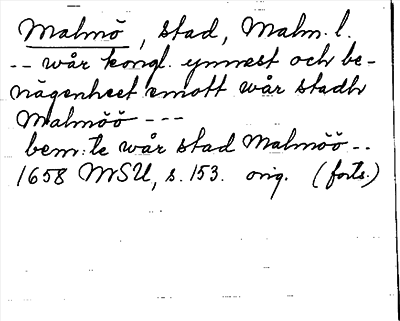 Malmö, stad, Malm. l.
-- wår kongl. ynnest och be-
nägenheet emott wår stadh
Malmöö ---
bem:te wår stad Malmöö --
1658 MSU, s. 153. orig. (forts.)